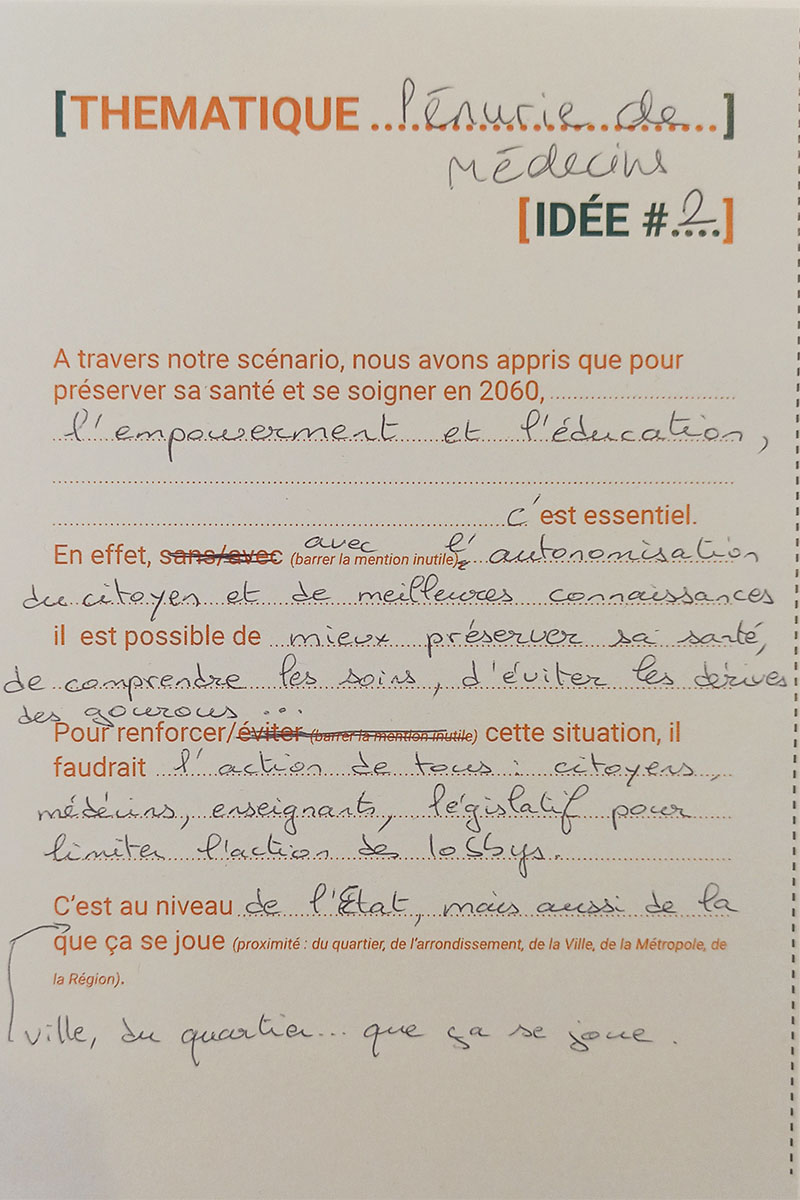 [THEMATIQUE Pénurie de]
Médecins
[IDÉE #2]
A travers notre scénario, nous avons appris que pour
préserver sa santé et se soigner en 2060,
l'empowerment et l'éducation,
c'est essentiel.
En effet, sans/avec (barrer la mention inutile) avec l'autonomisation
du citoyen et de meilleures connaissances
il est possible de mieux préserver sa santé,
de comprendre les soins, d'éviter les dérives
des gourous...
Pour renforcer/éviter (barrer la mention inutile) cette situation, il
faudrait l'action de tous : citoyens,
médécins, enseignants, législatif pour
limiter l'action des lobbys.
C'est au niveau de l'État, mais aussi de la
que ça se joue (proximité : du quartier, de l'arrondissement, de la Ville, de la Métropole, de
la Région).
ville, du quartier... que ça se joue.